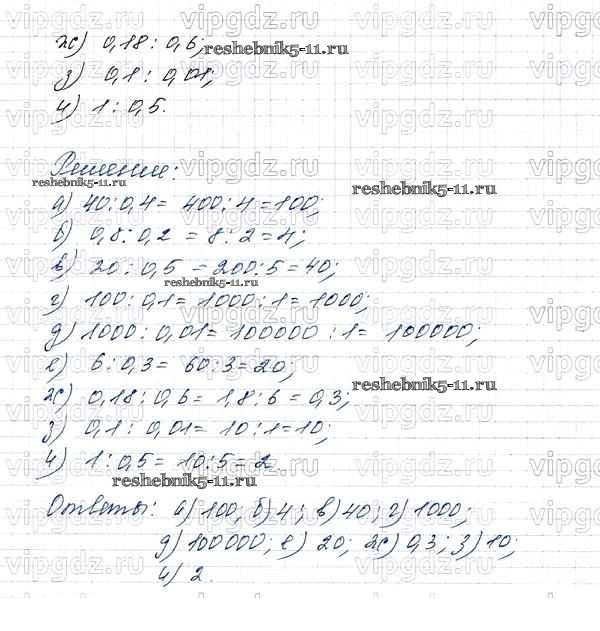 ж) 0,18 : 0,6;
reshebnik5-11.ru
з) 0,1 : 0,01;
и) 1 : 0,5.
Решение:
reshebnik5-11.ru
reshebnik5-11.ru
а) 40 : 0,4 = 400 : 4 = 100;
б) 0,8 : 0,2 = 8 : 2 = 4;
в) 20 : 0,5 = 200 : 5 = 40;
reshebnik5-11.ru
г) 100 : 0,1 = 1000 : 1 = 1000;
д) 1000 : 0,01 = 100000 : 1 = 100000;
е) 6 : 0,3 = 60 : 3 = 20;
reshebnik5-11.ru
ж) 0,18 : 0,6 = 1,8 : 6 = 0,3;
з) 0,1 : 0,01 = 10 : 1 = 10;
и) 1 : 0,5 = 10 : 5 = 2.
reshebnik5-11.ru
Ответы: а) 100; б) 4; в) 40; г) 1000;
д) 100000; е) 20; ж) 0,3; з) 10;
и) 2.
vipgdz.ru